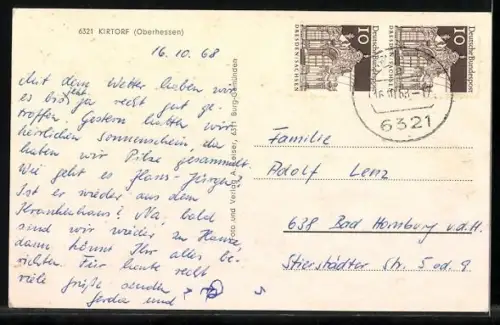 6321 KIRTORF (Oberhessen)
16.10.68
Mit dem Wetter haben wir
es bis jetzt ja recht gut ge-
troffen. Gestern hatten wir
herrlichen Sonnenschein, da
haben wir Pilze gesammelt.
Wie geht es Hans-Jürgen?
Ist er wieder aus dem
Krankenhaus? Na, bald
sind wir wieder zu Hause,
dann könnt Ihr alles be-
richten. Für heute recht
viele Grüße senden
Gerda und
Foto und Verlag A. Zeiser, 6311 Burg-Gemünden
Deutsche Bundespost
10
DRESDEN/SACHSEN
Deutsche Bundespost
10
DRESDEN/SACHSEN
6321
Familie
Adolf Lenz
638 Bad Homburg v.d.H.
Stierstädter Str. 5 od. 9